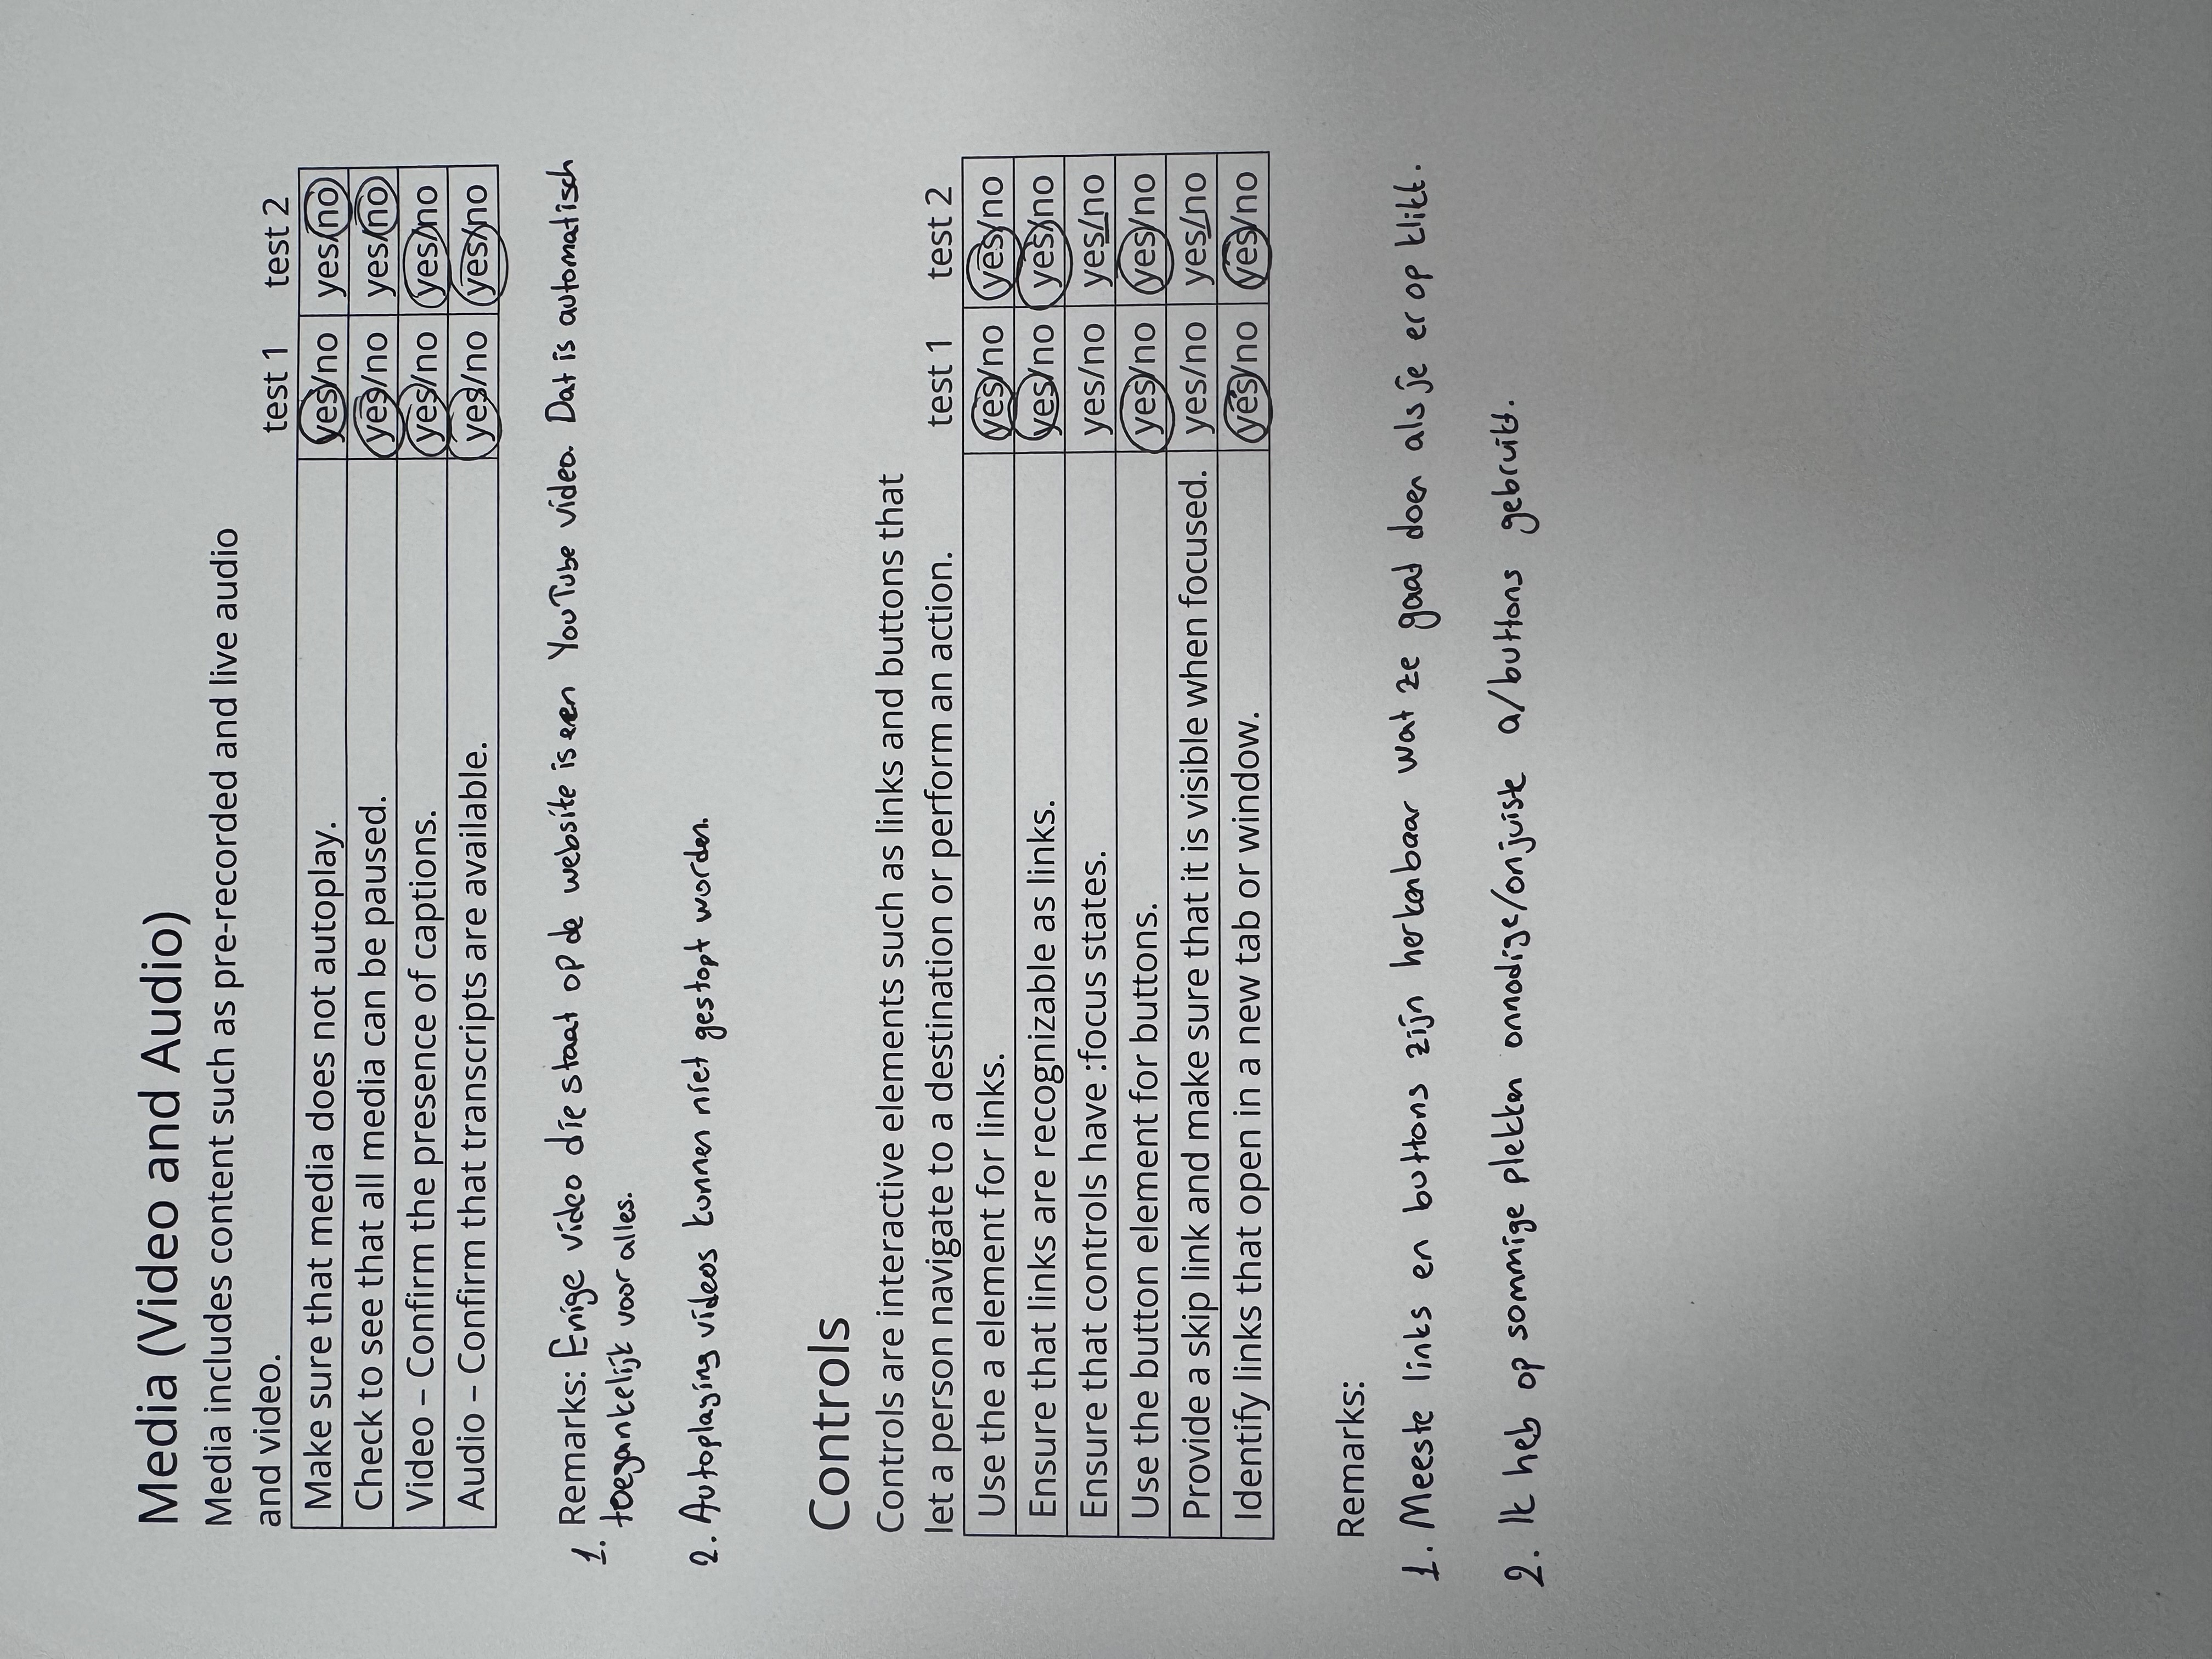 Media (Video and Audio)
Media includes content such as pre-recorded and live audio
and video. test 1 test 2
Make sure that media does not autoplay. yes/no yes/no
Check to see that all media can be paused. yes/no yes/no
Video – Confirm the presence of captions. yes/no yes/no
Audio – Confirm that transcripts are available. yes/no yes/no
1. Remarks: Enige video die staat op de website is een YouTube video. Dat is automatisch
toegankelijk voor alles.
2. Autoplaying videos kunnen niet gestopt worden.
Controls
Controls are interactive elements such as links and buttons that
let a person navigate to a destination or perform an action. test 1 test 2
Use the a element for links. yes/no yes/no
Ensure that links are recognizable as links. yes/no yes/no
Ensure that controls have :focus states. yes/no yes/no
Use the button element for buttons. yes/no yes/no
Provide a skip link and make sure that it is visible when focused. yes/no yes/no
Identify links that open in a new tab or window. yes/no yes/no
Remarks:
1. Meeste links en buttons zijn herkenbaar wat ze gaat doen als je er op klikt.
2. Ik heb op sommige plekken onnodige/onjuiste a/buttons gebruikt.